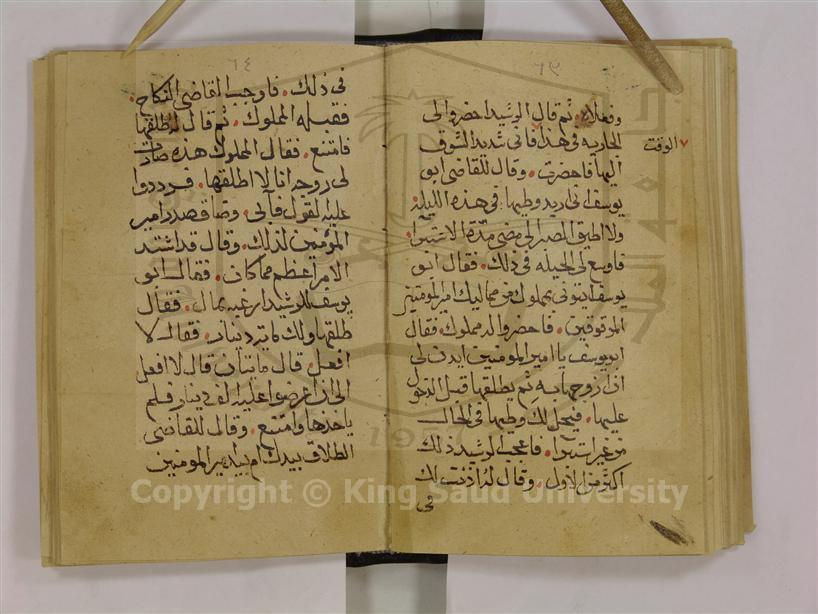 ٦٣
وفعلاه. ثم قال الرشيد احضروا لي
الجاريه في هذا فاني شديد الشوق
الوقت
اليها فاحضرت. وقال للقاضي ابو
يوسف اني اريد وطيها. في هذه الليله
ولا اطيق الصبر الى مضي مدة الاستبرا.
فاوسع لي الحيله في ذلك. فقال ابو
يوسف ايتوني بمملوك من مماليك امير المومنين
المرقوقين. فاحضروا له مملوك فقال
ابو يوسف يا امير المومنين ايدن لي
ان ازوجها به ثم يطلقها قبل الدخول
عليها. فيحل لك وطيها في الحال
من غير استبرا. فاعجب الرشيد ذلك
اكثر من الاول. وقال له اذنت لك
في
٦٤
في ذلك. فاوجب القاضي النكاح.
فقبله المملوك. ثم قال له طلقها
فامتنع. فقال المملوك هذه صارت
لي زوجه انا لا اطلقها. فرددوا
عليه القول فأبى. وضاق صدر امير
المؤمنين لذلك. وقال قد اشتد
الامر اعظم مما كان. فقال ابو
يوسف للرشيد ارغبه بمال. فقال
طلقها ولك ماية دينار. فقال لا
افعل. قال مايتان قال لا افعل
الى ان اعرضوا عليه الف دينار فلم
ياخذها وامتنع. وقال للقاضي
الطلاق بيدك ام بيد امير المومنين
Copyright © King Saud University